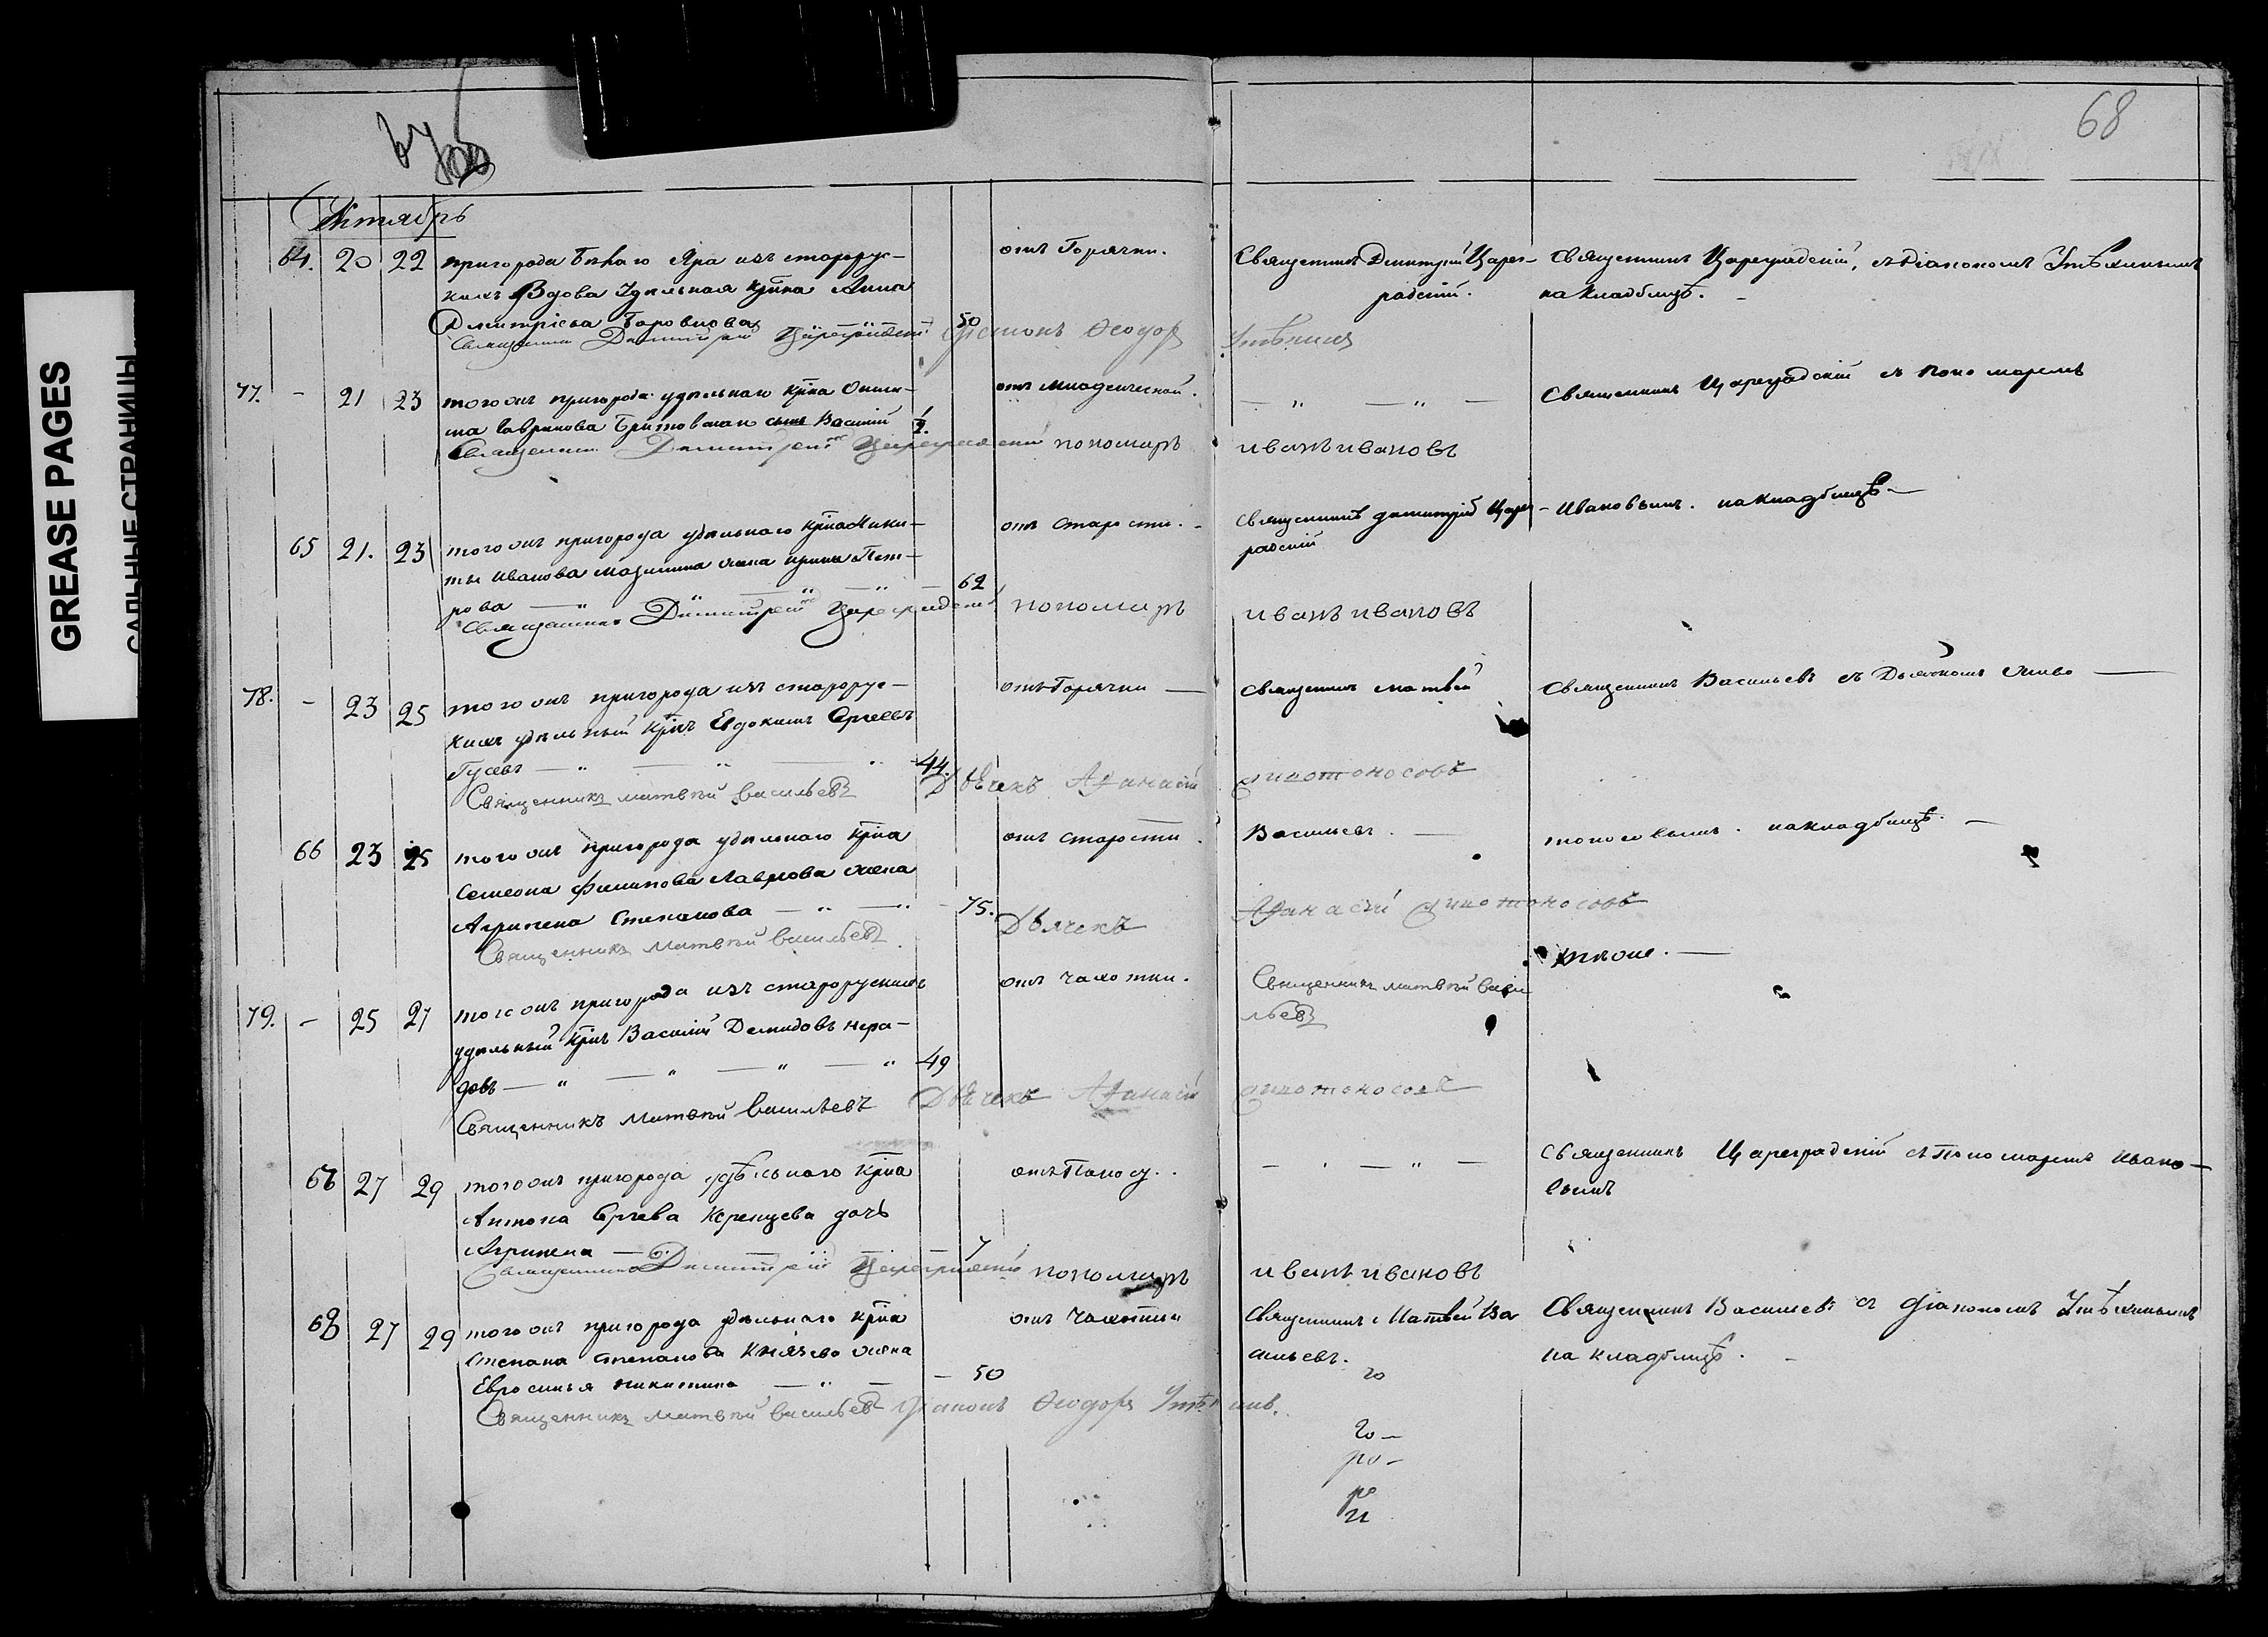 GREASE PAGES
САЛЬНЫЕ СТРАНИЦЫ
68
Октябрь
64. 20 22 пригорода Бѣлаго Яра изъ старорус-
кихъ Вдова Удѣльная кр͠нка Анна
Дмитріева Боровкова 50
отъ Горячки.
Священникъ Димитрій Царег-
радскій.
Священникъ Цареградскій, съ Діакономъ Утѣхинымъ
на кладбищѣ.
Священникъ Димитрій Цареградскій Діаконъ Ѳеодоръ Утѣхинъ
77. - 21 23 того онъ пригорода удѣльнаго кр͠на
Гаврилова сынъ Василій
отъ младенческой.
— „ — „ —
Священникъ Цареградскій съ Пономаремъ
Священникъ Димитрей Цареградскій пономарь иванъ ивановъ
65 21. 23 того онъ пригорода удѣльнаго кр͠на Ники-
ты Иванова жена ирина Пет-
рова — „ — „ — „ — 62
отъ старости. -
Священникъ димитрій Царег-
радскій
Ивановымъ. на кладбищѣ —
Священникъ Димитрей Цареградскій пономарь иванъ ивановъ
78. - 23 25 того онъ пригорода изъ старорус-
кихъ удѣльный кр͠нъ Евдокимъ Сргеевъ
Гусевъ — „ — „ — „ 44.
отъ Горячки —
Священникъ матвей
Священникъ Васильевъ съ Дьячкомъ Живо —
Священникъ матвѣй васильевъ Дьячекъ Аѳанасій Животоносовъ
66 23 25 того онъ пригорода удѣльнаго кр͠на
Семеона Филипова Лаврова жена
Агрипена Степанова — „ — „ - 75.
отъ старости.
Васильевъ. —
тоносовымъ. на кладбищѣ. —
Священникъ матвѣй васильевъ Дьячекъ Аѳанасій Животоносовъ
79. - 25 27 того онъ пригорода изъ старорускихъ
удѣльный кр͠нъ Василій Демидовъ Нера-
довъ — „ — „ — „ — „ 49
отъ чахотки.
Священникъ матвѣй васи
льевъ
тѣ же. —
Священникъ матвѣй васильевъ Дьячекъ Аѳанасій Животоносовъ
67 27 29 того онъ пригорода удѣльнаго кр͠на
Антона Сргева дочь
Агрипена — 7
отъ Поносу.
— „ — „ —
Священникъ Цареградскій съ Пономаремъ Ивано-
вымъ
Священникъ Димитрей Цареградскій пономарь иванъ ивановъ
68 27 29 того онъ пригорода удѣльнаго кр͠на
Степана Степанова Князева жена
Евросинья никитина — „ — - 50
отъ Чахотки
Священникъ Матвей Ва
сильевъ.
Священникъ Васильевъ съ Діакономъ Утѣхинымъ
на кладбищѣ. -
Священникъ матвѣй васильевъ Діаконъ Ѳеодоръ Утѣхинъ.
го
го -
ро -
ро